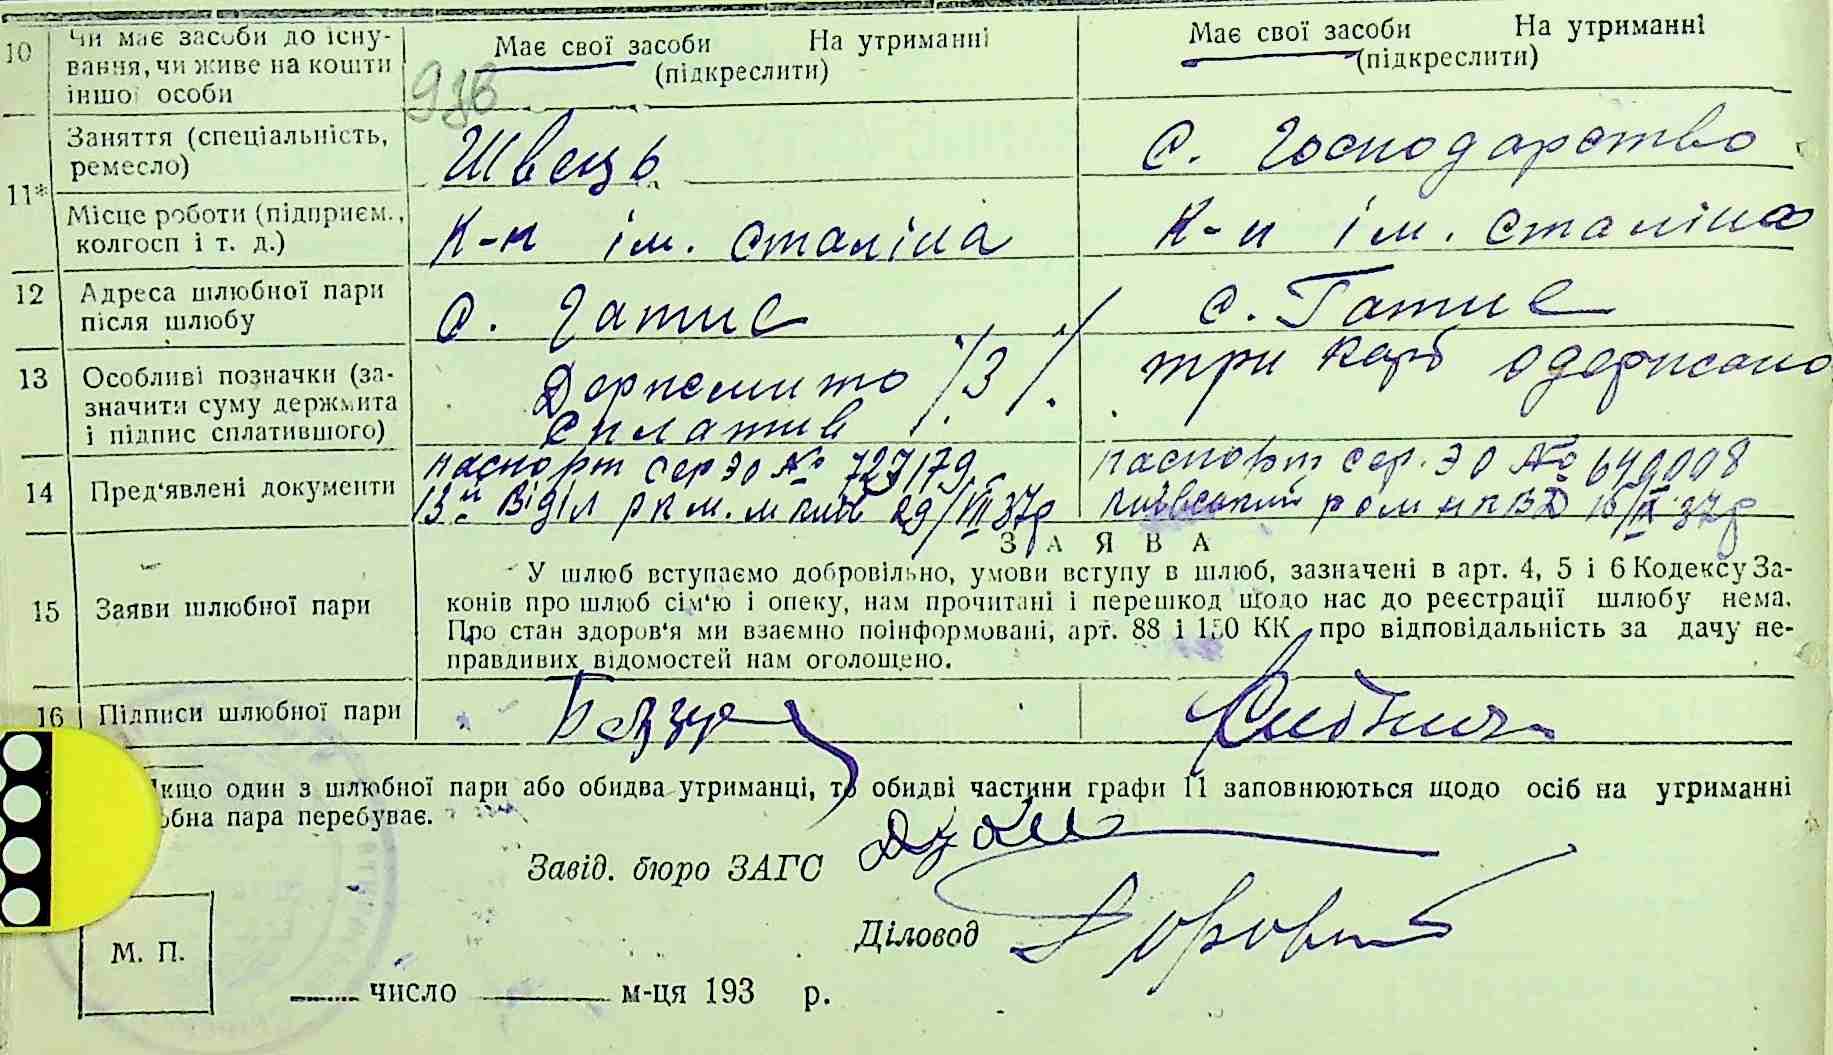 10 Чи має засоби до існу-
вання, чи живе на кошти
іншої особи
Має свої засоби На утриманні
(підкреслити)
Має свої засоби На утриманні
(підкреслити)
936
11* Заняття (спеціальність,
ремесло)
Швець
С. Господарство
Місце роботи (підприєм.,
колгосп і т. д.)
К-п ім. Сталіна
К-п ім. Сталіна
12 Адреса шлюбної пари
після шлюбу
С. Гатне
С. Гатне
13 Особливі позначки (за-
значити суму держмита
і підпис сплатившого)
Держмито /3/
сплатив
три карб одержано
14 Пред‘явлені документи
паспорт сер ЭО № 727179
13й Віділ РКМ. м Київ 29/VII 37р
паспорт сер. ЭО № 649008
Київський НКВД 37р
З А Я В А
15 Заяви шлюбної пари
У шлюб вступаємо добровільно, умови вступу в шлюб, зазначені в арт. 4, 5 і 6 Кодексу За-
конів про шлюб сім‘ю і опеку, нам прочитані і перешкод щодо нас до реєстрації шлюбу нема.
Про стан здоров‘я ми взаємно поінформовані, арт. 88 і 150 КК про відповідальність за дачу не-
правдивих відомостей нам оголошено.
16 Підписи шлюбної пари
кщо один з шлюбної пари або обидва утриманці, то обидві частини графи 11 заповнюються щодо осіб на утриманні
обна пара перебуває.
Завід. бюро ЗАГС
Діловод
М. П.
число м-ця 193 р.